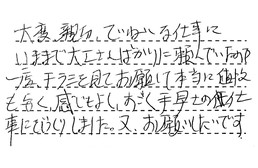 大変、親切、ていねいな仕事に
いままで大工さんばかりに頼んでいたので
一度、チラシを見てお願いして本当に値段
も安く、感じもよし、おそく手早さの仕仕
事にびっくりしました。又、お願いしたいです